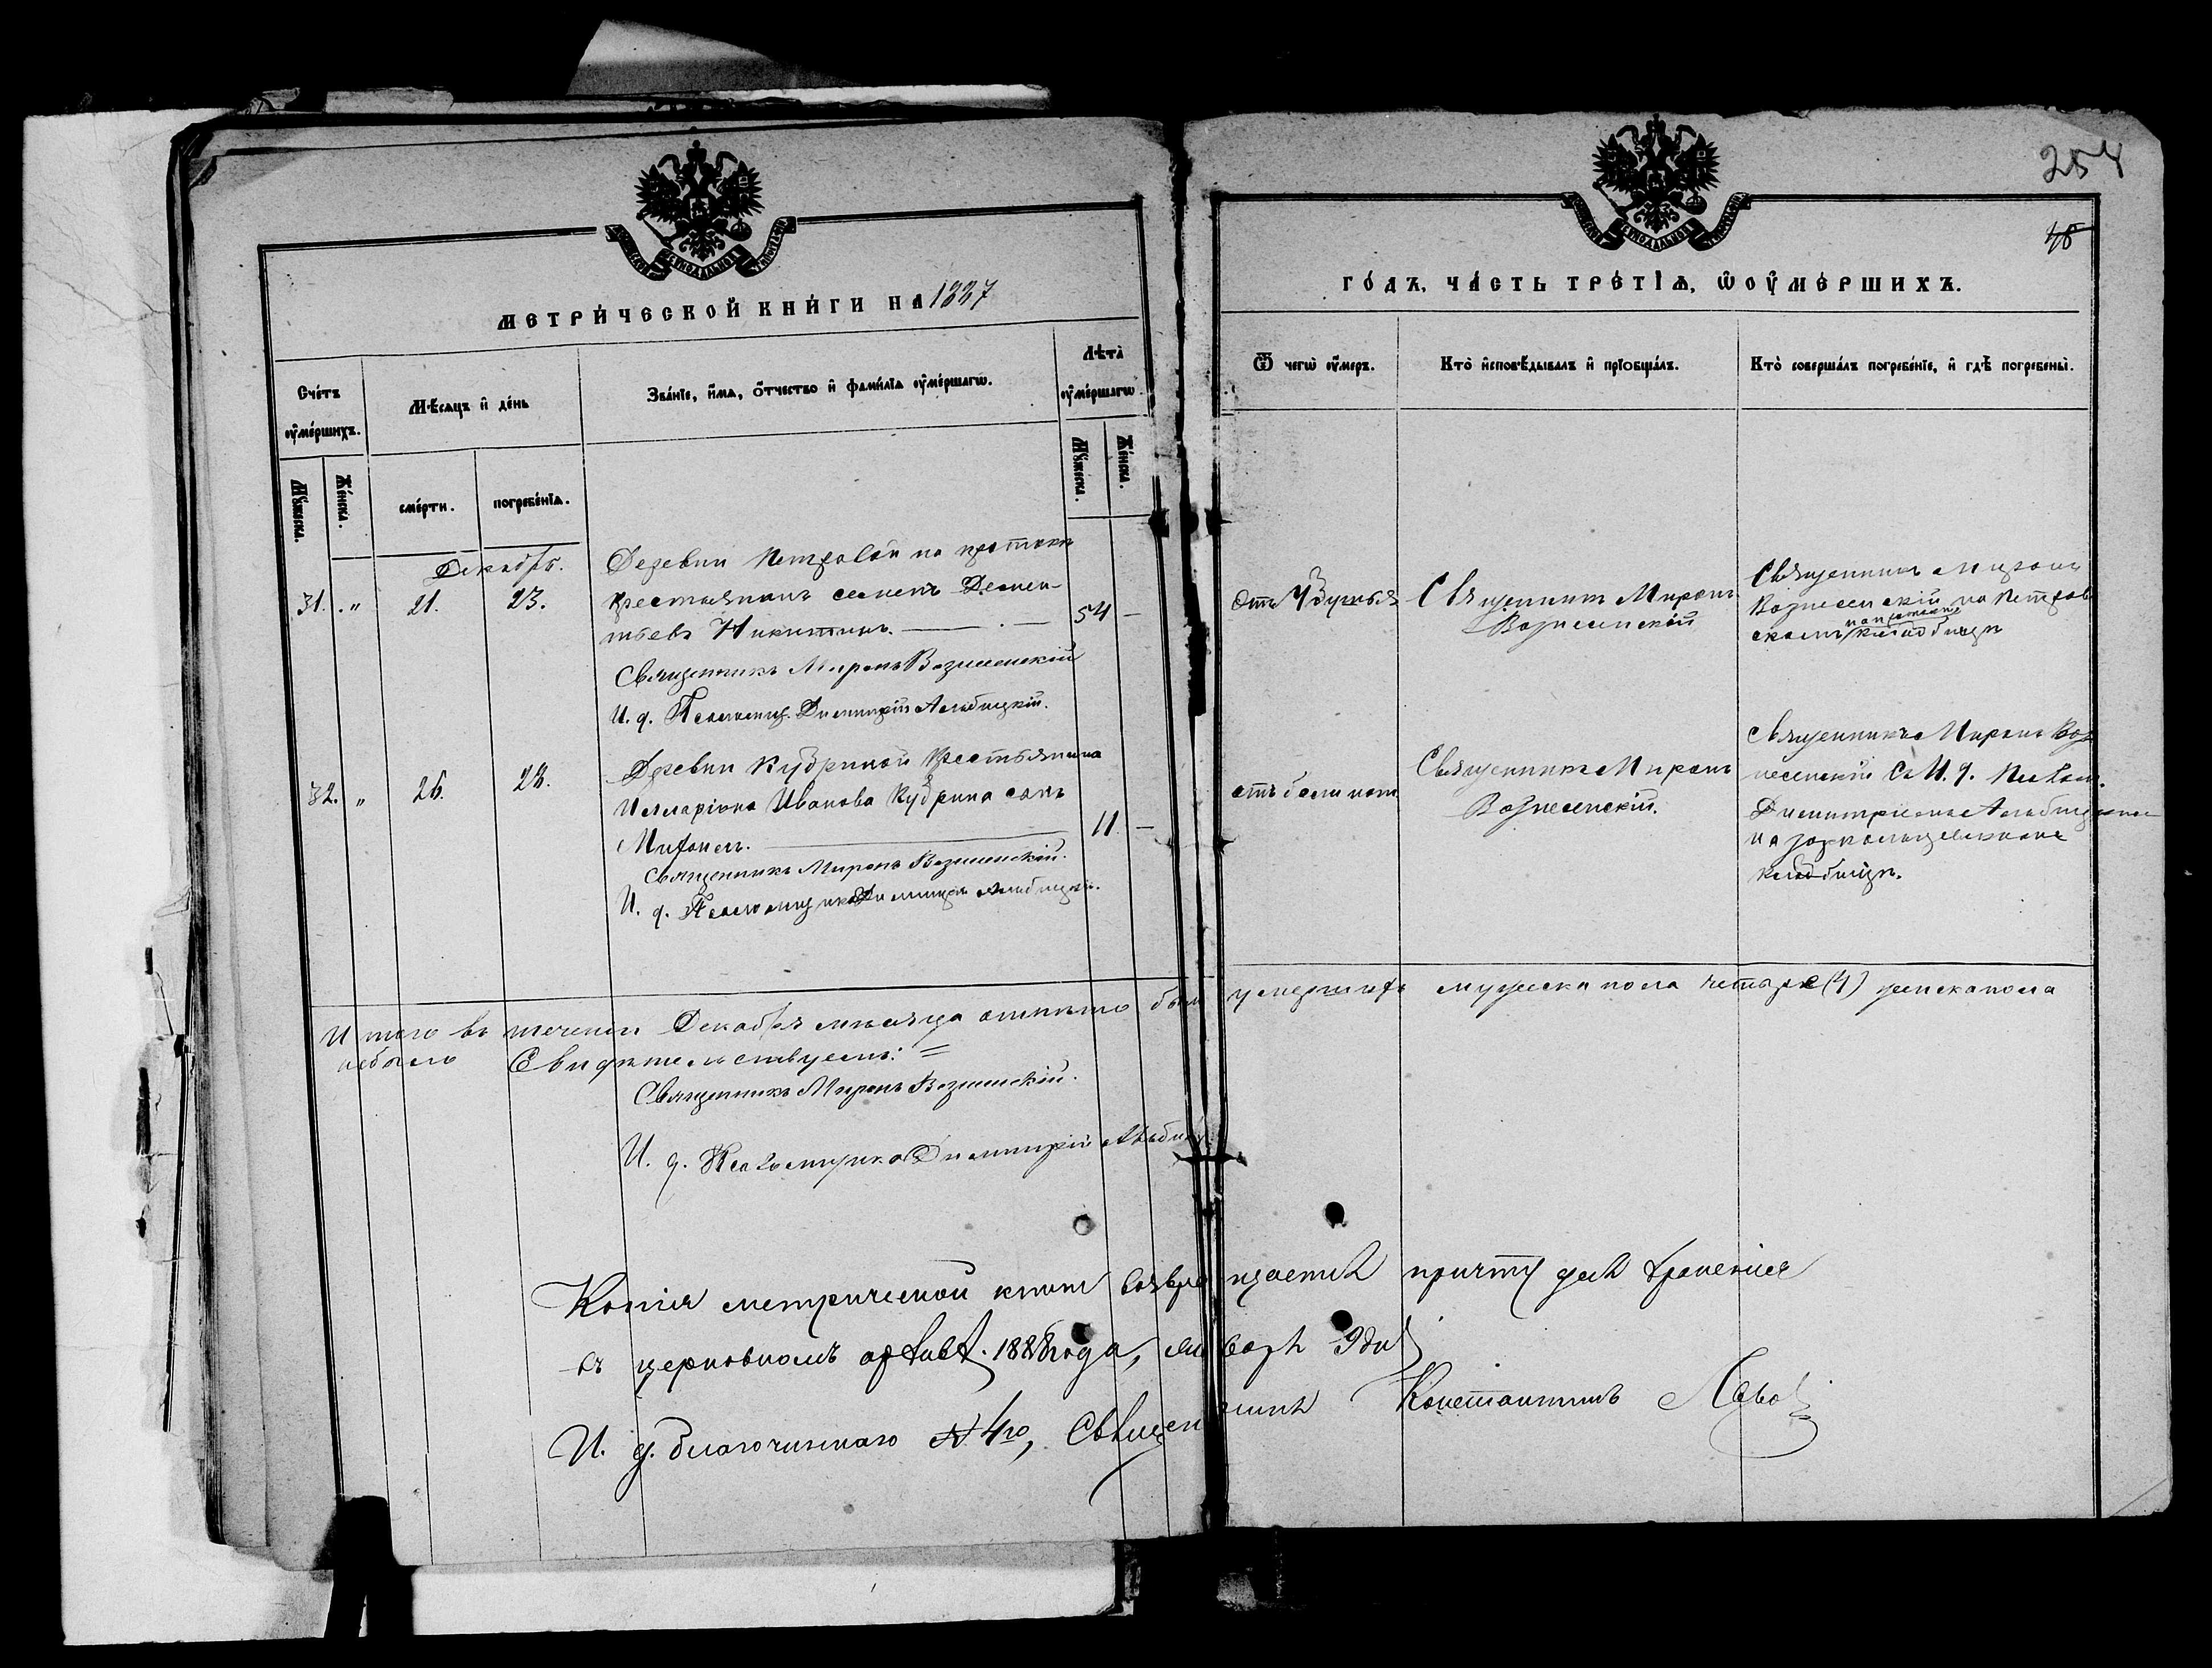 254
48
МЕТРИ́ЧЕСКОЙ КНИ́ГИ НА 1887
ГО́ДЪ, ЧА́СТЬ ТРЕ́ТІѦ, Ѡ ОУ҆МЕ́РШИХЪ.
Сче́тъ оу҆ме́ршихъ.
Мѣ́сяцъ и҆ де́нь
Зва́нїе, и҆́мѧ, о҆́тчество и҆ фами́лїѧ оу҆ме́ршагѡ.
Лѣ́та оу҆ме́ршагѡ
Ѿ чегѡ̀ оу҆́меръ.
Кто̀ и҆сповѣ́дывалъ и҆ прїобща́лъ.
Кто̀ соверша́лъ погребе́нїе, и҆ гдѣ̀ погребены̀.
Му́жеска.
Же́нска.
сме́рти.
погребе́нїѧ.
Му́жеска.
Же́нска.
Декабрь.
31. „ 21. 23.
Деревни Петровой на протокѣ
крестьянинъ Семенъ Демен-
тьевъ Никитинъ. — 54 —
Священникъ Миронъ Вознесенскій
И. д. Псаломщ. Димитрій Альбицкій.
Отъ
Священникъ Миронъ
Вознесенскій
Священникъ Миронъ
Вознесенскій на Петров
скомъ кладбищѣ
32. „ 26. 28.
Деревни Кудриной крестьянина
Илларіона Иванова Кудрина сынъ
11 —
Священникъ Миронъ Вознесенскій.
И. д. Псаломщика Димитрій Альбицкій.
отъ
Священникъ Миронъ
Вознесенскій.
Священникъ Миронъ Воз
несенскій съ И. д. Псалом.
Димитріемъ Альбицкимъ
на
кладбищѣ.
Итого въ теченіи Декабря мѣсяца было умершихъ мужеска пола четыре (4) женска пола
небыло Свидѣтельствуемъ: =
Священникъ Миронъ Вознесенскій.
И. д. Псаломщика Димитрій Альбиц
Копія метрической книги возвращается причту для храненія
въ церковномъ архивѣ. 1888 года, января 9 дня
И. д. благочиннаго N 4го, Священникъ Константинъ